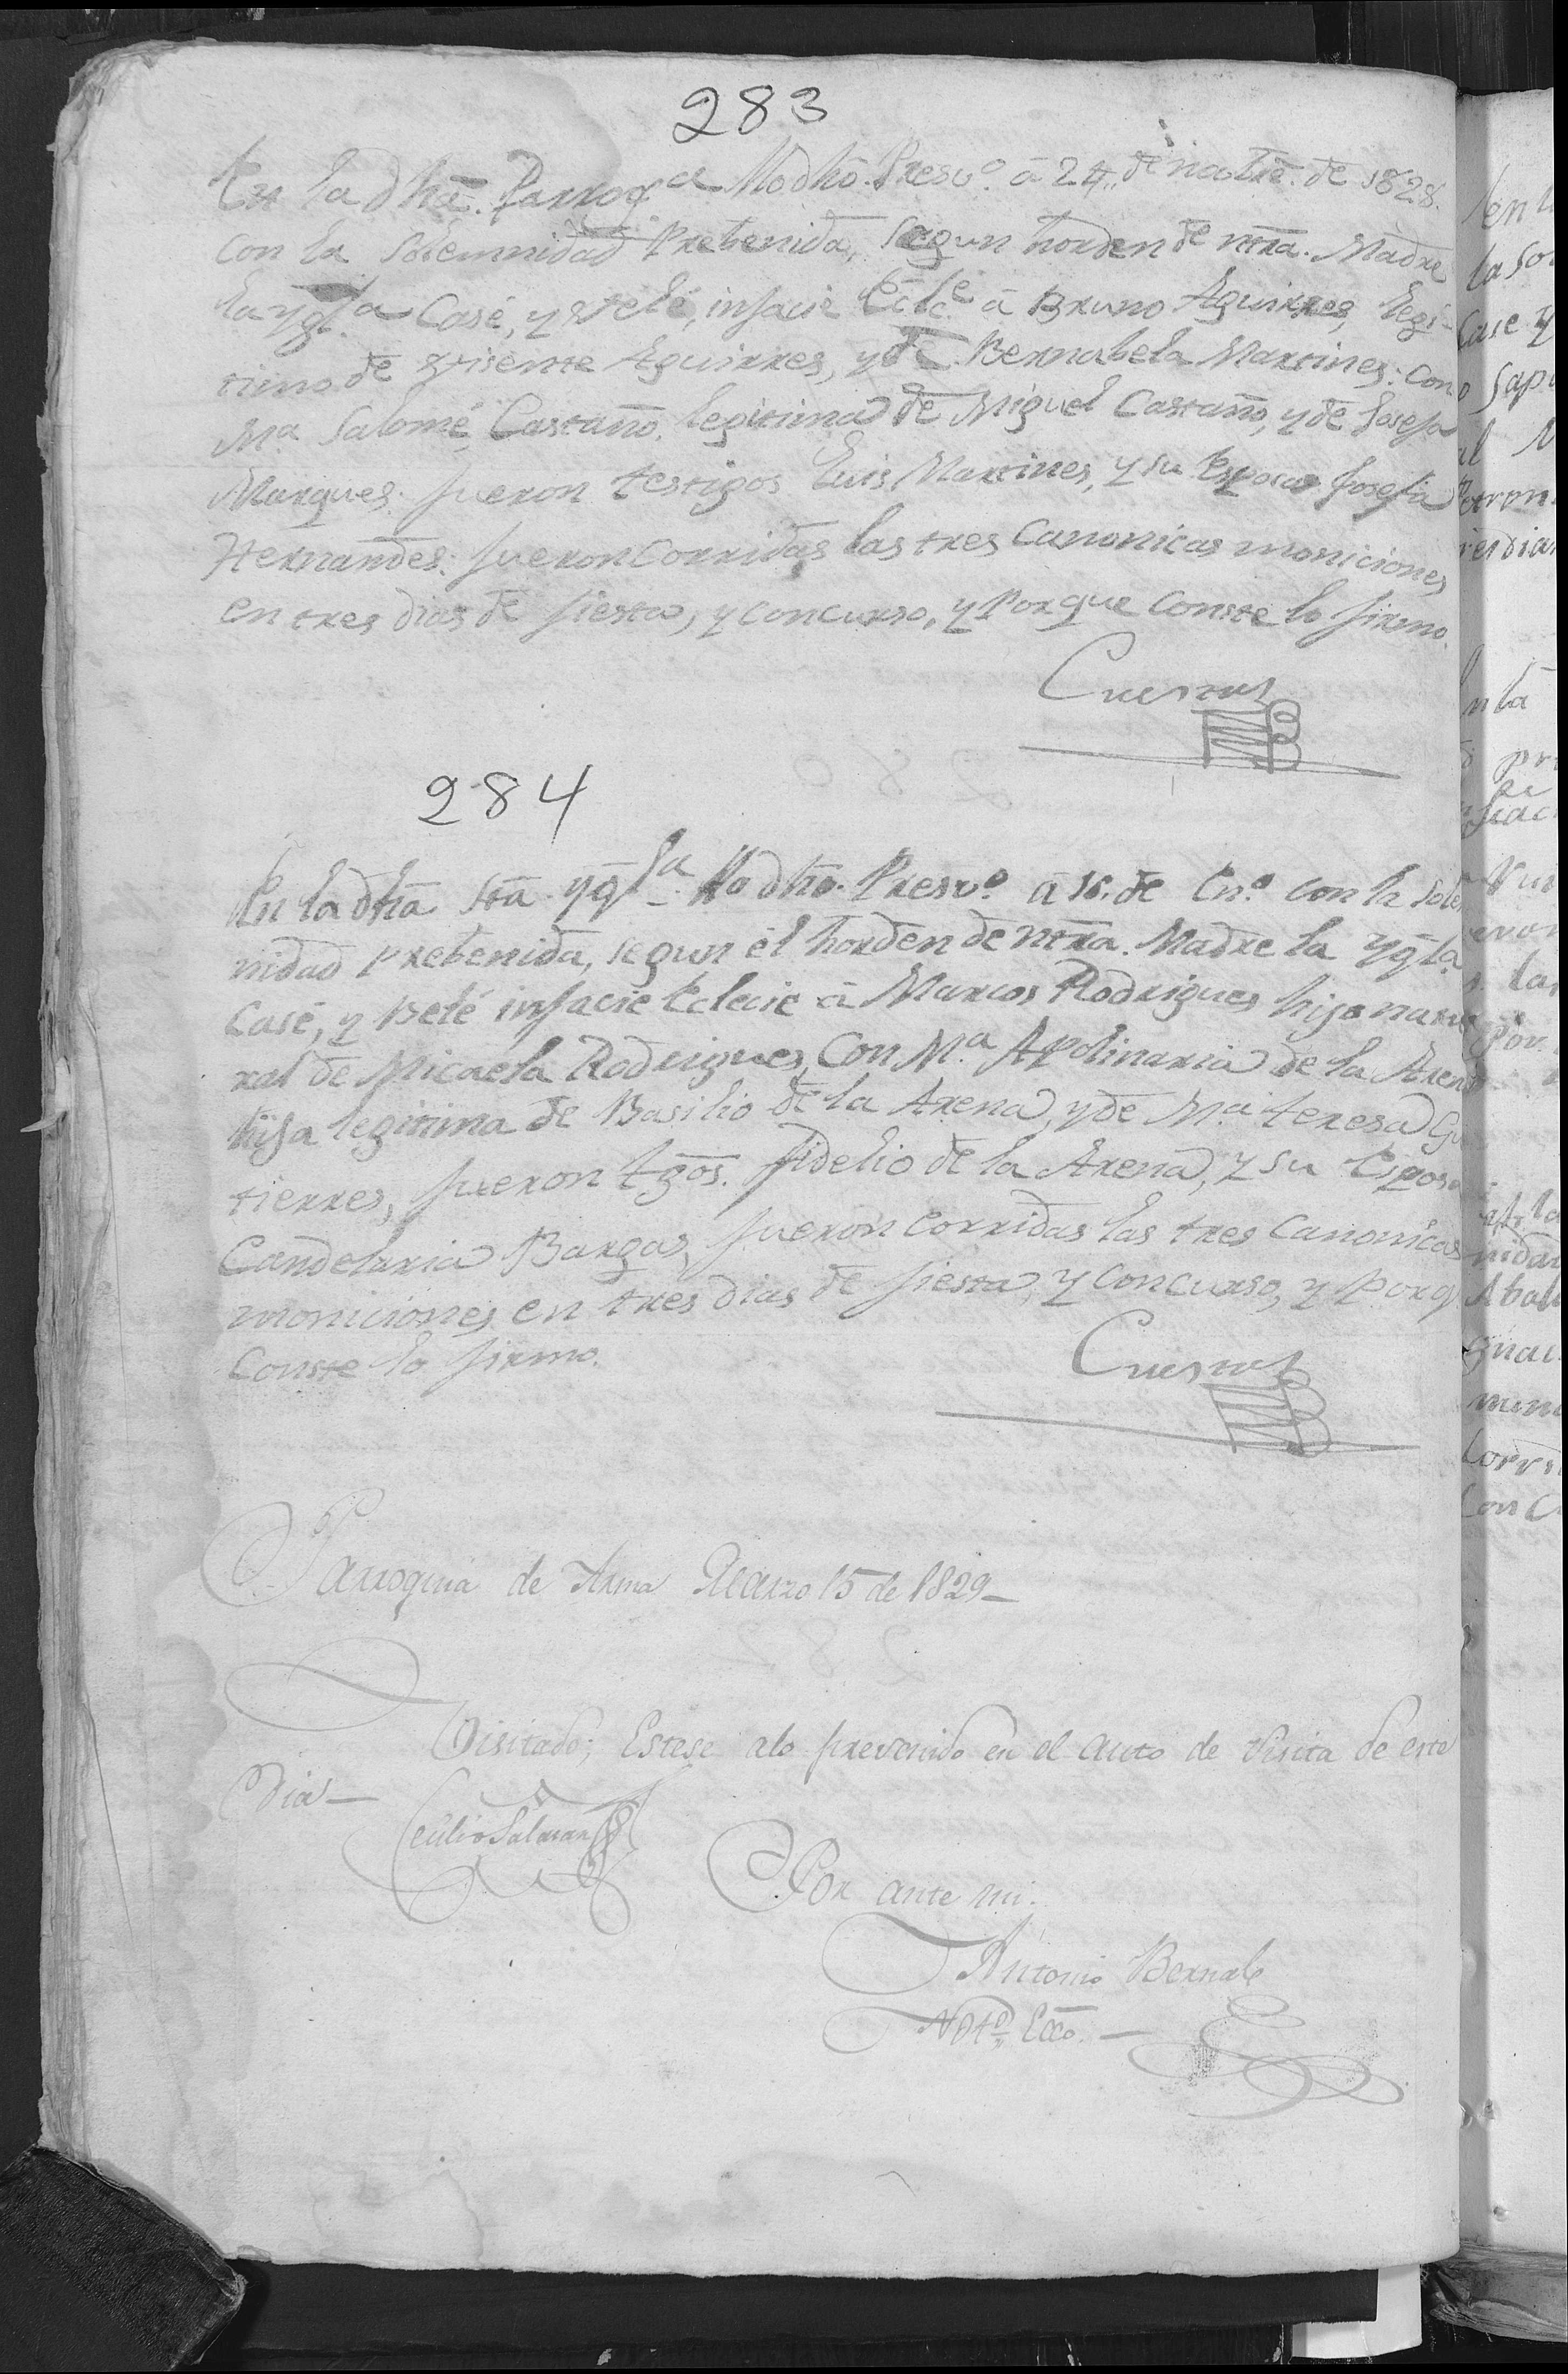 283
En la dhã. Parroqª Yo dhõ. Presvº. â 24,, de nobre. de 1828.
con la solemnidad Prebenida, segun horden de ntra. Madre
la yglª Casé, y Velé, infacie Ecleᵉ â Bruno Aguirres, legi-
timo de Visente Aguirres, y de Bernabela Martines: con
Mª Salomé Castaño, legitima de Miguel Castaño, y de Josefa
Marques. fueron testigos Luis Martines, y su Esposa Josefa
Hernandes: fueron Corridas las tres Canonicas moniciones
en tres dias de fiesta, y concurso, y Porque Conste lo firmo.
Cuestas
284
En la dhã stã yglª Yo dhõ. Presvº â 16. de Enº con la solem
nidad Prebenida, segun él horden de ntra. Madre la yglã
Casé, y Belé infacie Eclecie â Marcos Rodrigues hijo natu
ral de Micaela Rodrigues, Con Mª Apolinaria de la Arena
hija legitima de Basilio de la Arena, y de Mª teresa Gu
tierres, fueron tgõs. fidelio de la Arena, y su Esposa
Candelaria Bargas, fueron corridas las tres Canonicas
moniciones en tres dias de fiesta, y concurso, y Porq
Conste lo firmo.
Cuestas
Parroquia de Arma Marzo 15 de 1829_
Visitado; Estese alo prevenido en el auto de Visita de este
Dia_
Por ante mi.
Antonio Bernal
Notº Ecco._